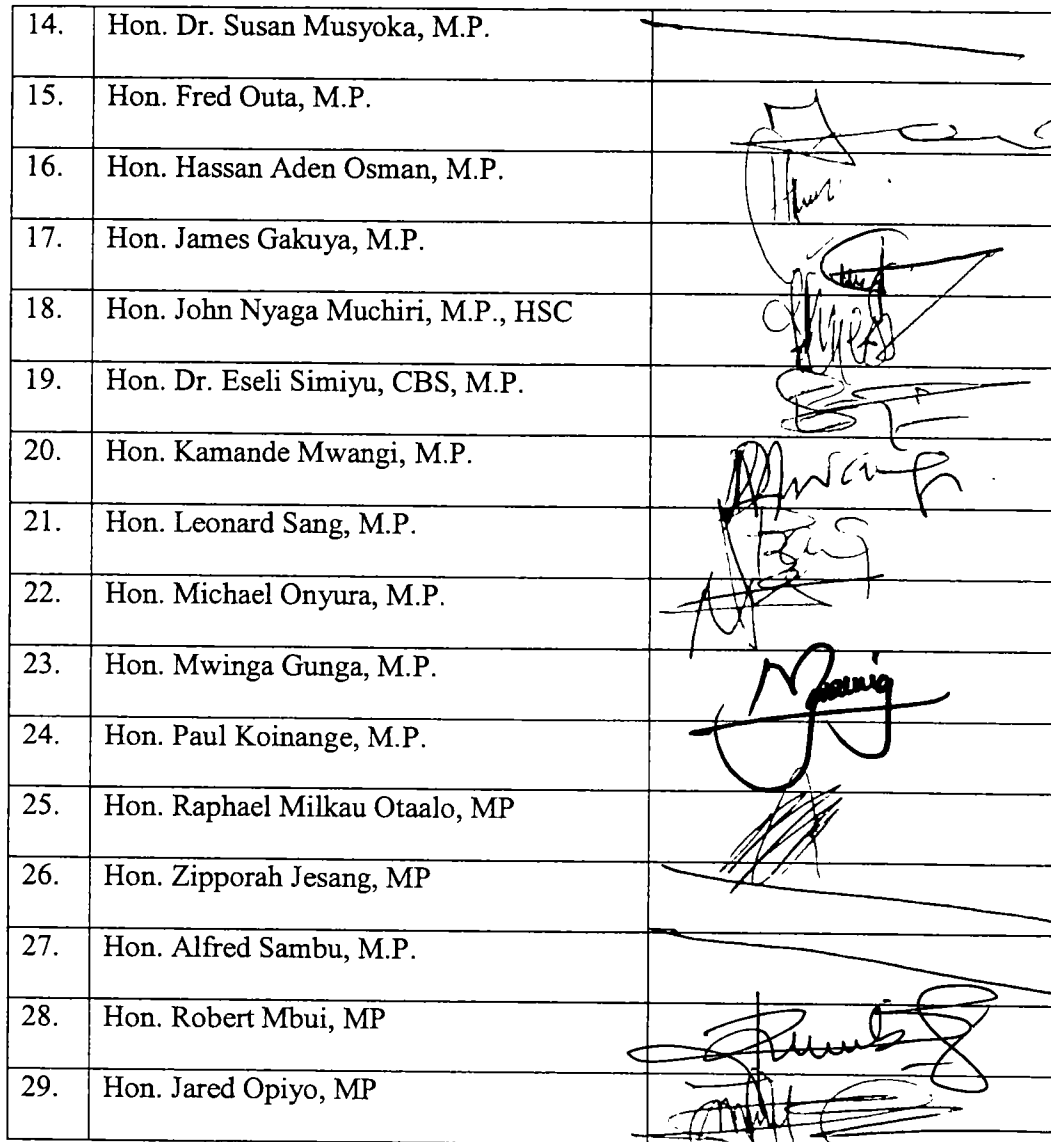 14. Hon. Dr. Susan Musyoka, M.P.
15. Hon. Fred Outa, M.P.
16. Hon. Hassan Aden Osman, M.P.
17. Hon. James Gakuya, M.P.
18. Hon. John Nyaga Muchiri, M.P., HSC
19. Hon. Dr. Eseli Simiyu, CBS, M.P.
20. Hon. Kamande Mwangi, M.P.
21. Hon. Leonard Sang, M.P.
22. Hon. Michael Onyura, M.P.
23. Hon. Mwinga Gunga, M.P.
24. Hon. Paul Koinange, M.P.
25. Hon. Raphael Milkau Otaalo, MP
26. Hon. Zipporah Jesang, MP
27. Hon. Alfred Sambu, M.P.
28. Hon. Robert Mbui, MP
29. Hon. Jared Opiyo, MP